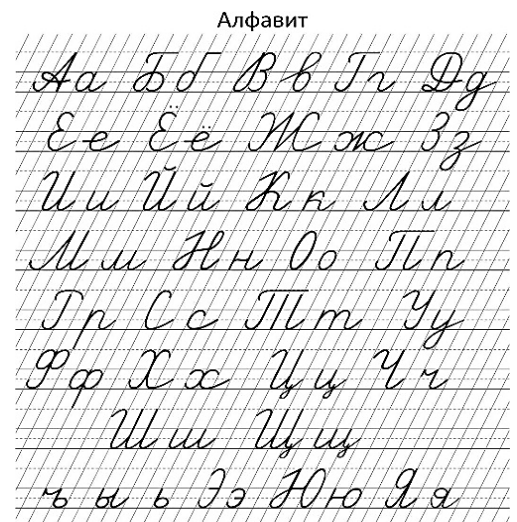 Алфавит
Аа Бб Вв Гг Дд
Ее Ёё Жж Зз
Ии Йй Кк Лл
Мм Нн Оо Пп
Рр Сс Тт Уу
Фф Хх Цц Чч
Шш Щщ
ъ ы ь Ээ Юю Яя